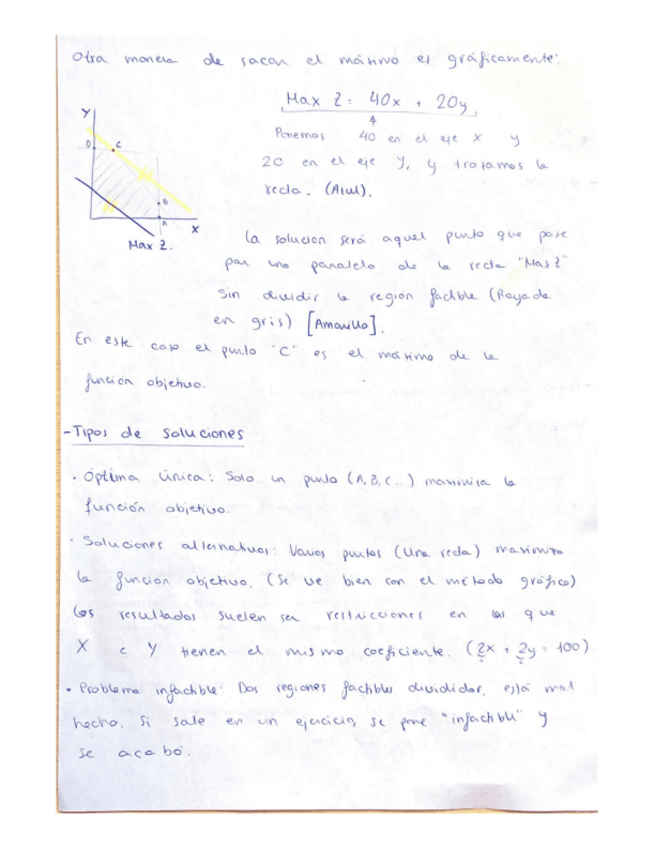 Otra manera de sacar el máximo es gráficamente:
Max Z = 40x + 20y
Ponemos 40 en el eje X y
20 en el eje Y, y trazamos la
recta. (Azul).
Y
D
C
B
A
X
Max Z.
La solución será aquel punto que pase
por una paralela de la recta "Max Z"
sin dividir la región factible (Rayada
en gris) [Amarillo].
En este caso el punto "C" es el máximo de la
función objetivo.
- Tipos de soluciones
· Óptima única: Solo un punto (A, B, C...) maximiza la
función objetivo.
· Soluciones alternativas: Varios puntos (Una recta) maximiza
la función objetivo. (Se ve bien con el método gráfico)
Los resultados suelen ser restricciones en las que
X e Y tienen el mismo coeficiente. (2x + 2y = 100)
· Problema infactible: Dos regiones factibles divididas, está mal
hecho. Si sale en un ejercicio, se pone "infactible" y
se acabó.